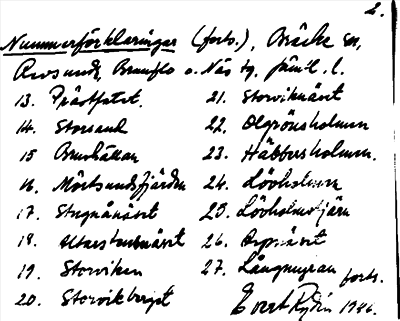 2.
Nummerförklaringar (forts.), Bräcke sn,
Revsund, Brunflo o. Näs tg, Jämtl. l.
13. Prästfatet.
14. Storsund
15 Brunhällan
16. Mörtsundsfjärden
17. Stugunäset
18.
19. Storviken
20. Storvikberget
21. Storviknäset
22. Olgrönsholmen
23. Häbbersholmen.
24. Lövholmen
25. Lövholmstjärn
26.
27. Långmyran
forts.
Evert Rydin 1946.